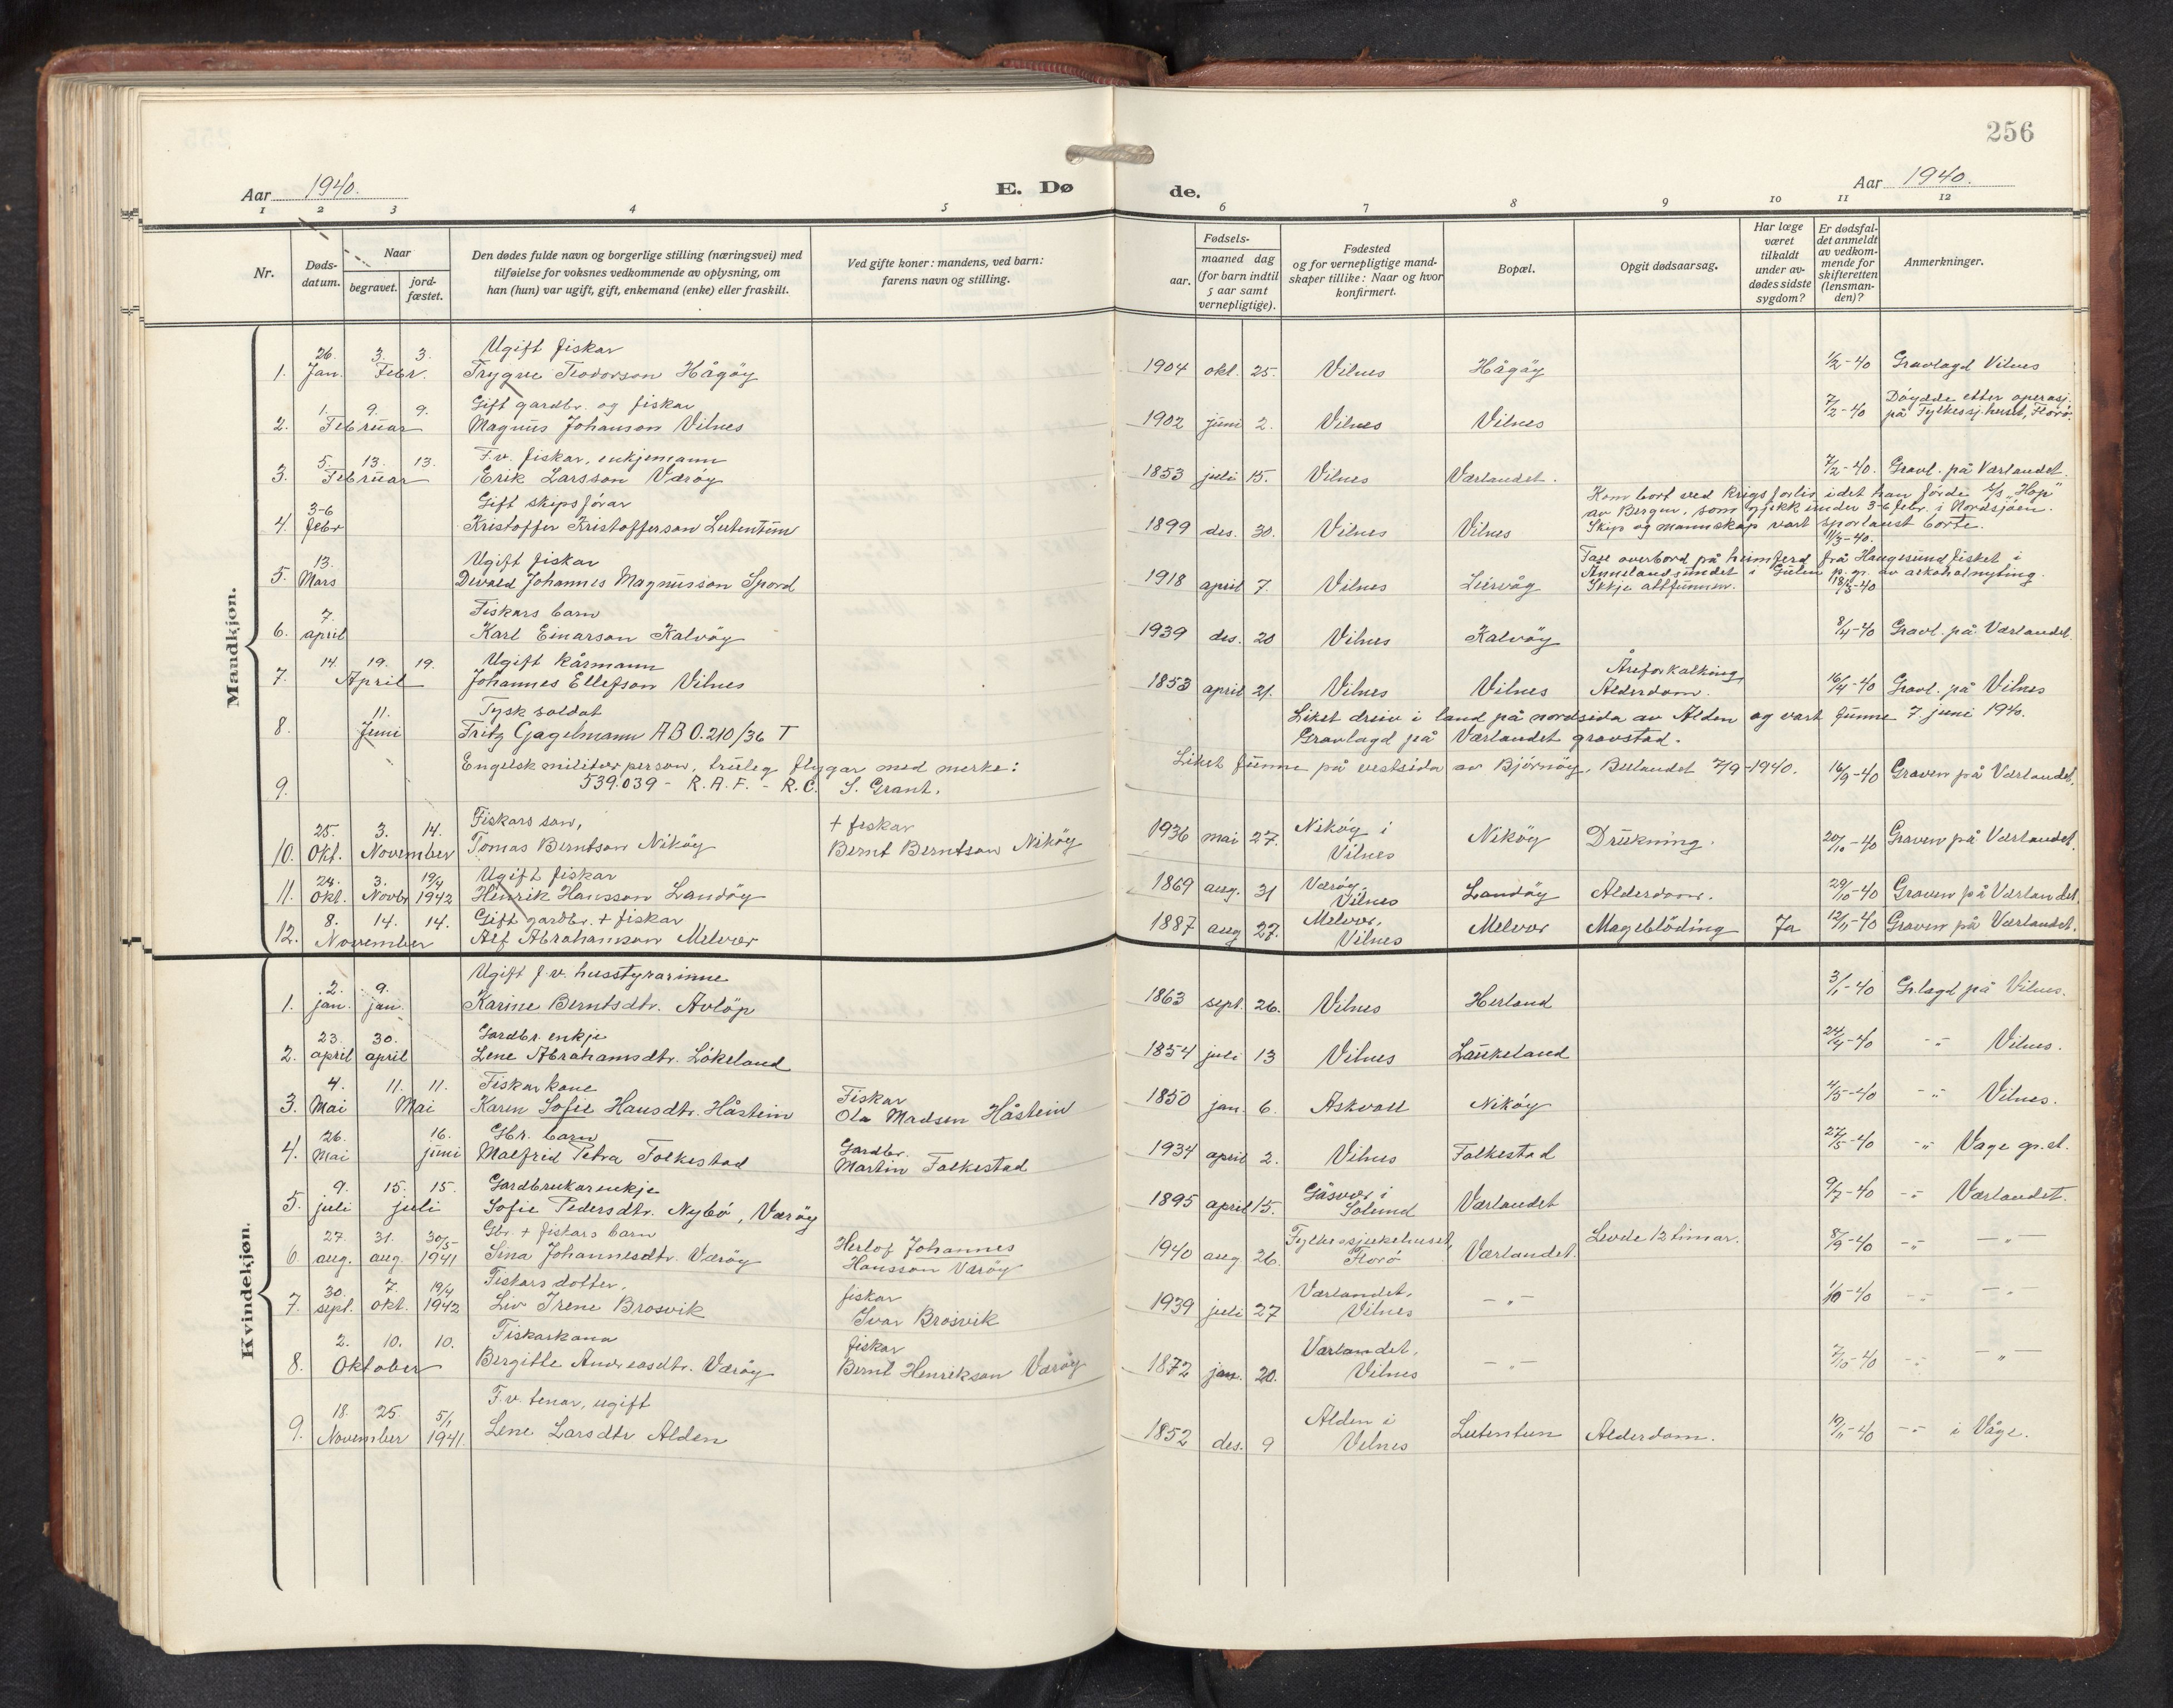 256
Aar 1940.
E. Dø
de.
Aar 1940.
1 2 3 4 5 6 7 8 9 10 11 12
Nr.
Døds-
datum.
Naar
begravet.
jord-
fæstet.
Den dødes fulde navn og borgerlige stilling (næringsvei) med
tilføielse for voksnes vedkommende av oplysning, om
han (hun) var ugift, gift, enkemand (enke) eller fraskilt.
Ved gifte koner: mandens, ved barn:
farens navn og stilling.
Fødsels-
aar.
maaned dag
(for barn indtil
5 aar samt
vernepligtige).
Fødested
og for vernepligtige mand-
skaper tillike: Naar og hvor
konfirmert.
Bopæl.
Opgit dødsaarsag.
Har læge
været
tilkaldt
under av-
dødes sidste
sygdom?
Er dødsfal-
det anmeldt
av vedkom-
mende for
skifteretten
(lensman-
den)?
Anmerkninger.
Mandkjøn.
26. 3. 3. Ugift fiskar
1. Jan. Febr. Trygve Teodorson Hågöy 1904 okt. 25. Vilnes Hågöy 1/2-40 Gravlagd Vilnes
1. 9. 9. Gift gardbr. og fiskar Döydde etter operasj.
2. Februar Magnus Johanson Vilnes 1902 juni 2. Vilnes Vilnes 7/2-40 på Fylkessj.huset, Florö.
5. 13. 13. F.v. fiskar, enkjemann
3. Februar Erik Larsson Værøy 1853 juli 15. Vilnes Værlandet. 7/2-40. Gravl. på Værlandet.
3-6 Gift skipsförar Kom bort ved krigsforlis idet han förde s/s "Hop"
av Bergen, som gjekk under 3-6 febr. i Nordsjöen.
4. febr Kristoffer Kristofferson Leitentun 1899 des. 30. Vilnes Vilnes Skip og mannskap vart sporlaust borte.
11/3-40.
13. Ugift fiskar Fall overbord på heimferd frå Haugesund fisket i
5. Mars Johannes Magnusson Spord 1918 april 7. Vilnes Leirvåg i Gulen p.gr. av alkoholnyting.
Ikkje attfunnen. 18/3-40
7. Fiskars barn
6. april Karl Einarson Kalvöy 1939 des. 20 Vilnes Kalvöy 8/4-40 Gravl. på Værlandet.
14. 19. 19. Ugift kårmann Åreforkalkning,
7. April Johannes Ellefson Vilnes 1853 april 21. Vilnes Vilnes Alderdom. 16/4-40 Gravl. på Vilnes
11. Tysk soldat Liket dreiv i land på nordsida av Alden og vart funne 7. juni 1940.
8. Juni Fritz Gagelmann ABO.210/36 T Gravlagd på Værlandet gravstad.
Engelsk militærperson, truleg flygar med merke: Liket funne på vestsida av Björnöy, Bulandet 7/9-1940. 16/9-40 Graven på Værlandet.
9. 539.039 - R.A.F. - R.C. S. Grant.
25. 3. 14. Fiskars son, + fiskar Niköy i
10. Okt. November Tomas Berntson Niköy Bernt Berntson Niköy 1936 mai 27. Vilnes Niköy Drukning. 20/10-40 Graven på Værlandet.
24. 3. 19/4 Ugift fiskar Værøy,
11. Okt. Novbr 1942 Henrik Hansson Landöy 1869 aug. 31 Vilnes Landöy Alderdom. 29/10-40 Graven på Værlandet.
8. 14. 14. Gift gardbr. + fiskar Melvær,
12. November Alf Abrahamson Melvær 1887 aug 27. Vilnes Melvær Mageblöding Ja 12/11-40 Graven på Værlandet.
Kvindekjøn.
2. 9. Ugift f.v. husstyrarinne
1. jan. jan. Karine Berntsdtr. Avlöp 1863 sept. 26. Vilnes Herland 3/1-40 Gr.lagd på Vilnes.
23. 30. Gardbr. enkje
2. april april Lene Abrahamsdtr. Lökeland 1854 juli 13 Vilnes Laukeland 24/4-40 -"- Vilnes.
4. 11. 11. Fiskarkone Fiskar
3. Mai Mai Karen Sofie Hansdtr. Håstein Ola Madsen Håstein 1850 jan. 6. Askvoll Niköy 4/5-40 -"- Vilnes.
26. 16. Gbr. barn Gardbr.
4. Mai juni Malfrid Petra Folkestad Martin Folkestad 1934 april 2. Vilnes Folkestad 27/5-40 -"- Våge gr.st.
9. 15. 15. Gardbrukarenkje Gåsvær i
5. juli juli Sofie Pedersdtr. Nybö, Værøy 1895 april 15. Solund Værlandet 9/7-40 -"- Værlandet.
27. 31. 30/5 Gbr. + fiskars barn Herlof Johannes Fylkessjukehuset, Levde 12 timar.
6. aug. aug. 1941 Johannesdtr. Værøy Hansson Værøy 1940 aug 26. Florö Værlandet. 8/9-40 -"- -"-
30. 7. 19/4 Fiskars dotter, fiskar Værlandet,
7. sept. Okt. 1942 Liv Irene Brosvik Ivar Brosvik 1939 juli 27 Vilnes -"- 1/10-40 -"- -"-
2. 10. 10. Fiskarkona fiskar Værlandet,
8. Oktober Bergitte Andreasdtr. Værøy Bernt Henrikson Værøy 1872 jan. 20. Vilnes -"- 7/10-40 -"- -"-
18. 25. 5/1 F.v. tenar, ugift Alden i
9. November 1941. Lene Larsdtr Alden 1852 des. 9 Vilnes Leitentun Alderdom. 19/11-40 -"- i Våge.